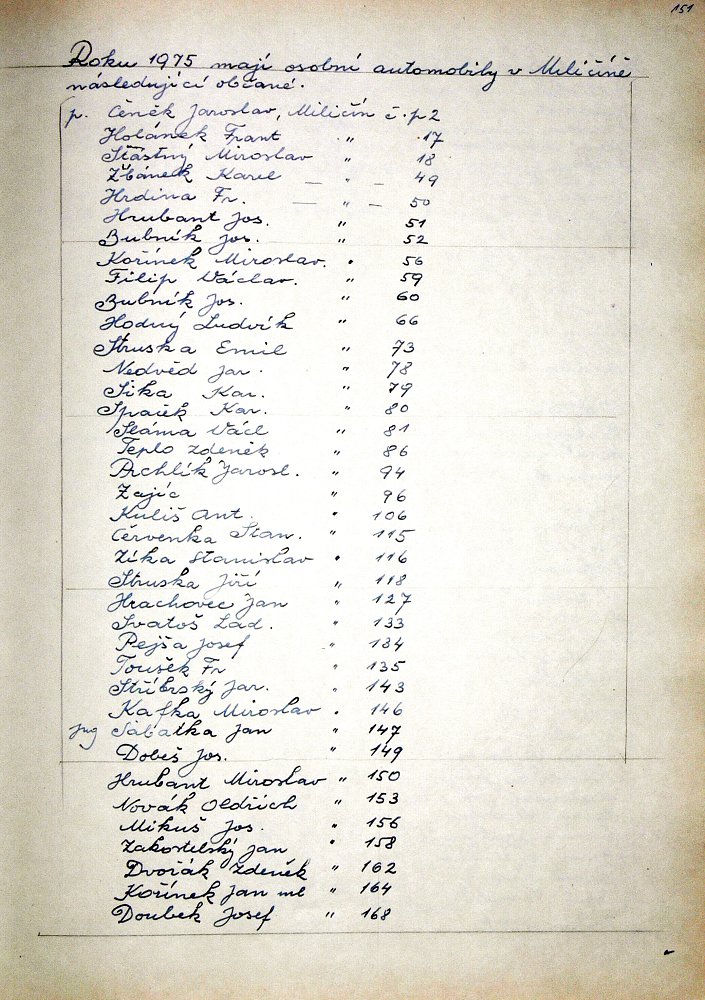 151
Roku 1975 mají osobní automobily v Miličíně
následující občané.
p. Čeněk Jaroslav, Miličín č.p 2
Holánek Frant " 17
Šťastný Miroslav " 18
Žbánek Karel — " — 49
Hrdina Fr. — " — 50
Hrubant Jos. " 51
Bubník Jos. " 52
Kořínek Miroslav. " 56
Filip Václav. " 59
Bubník Jos. " 60
Hodný Ludvík " 66
Struska Emil " 73
Nedvěd Jar. " 78
Šika Kar. " 79
Špaček Kar. " 80
Sláma Václ " 81
Teplo Zdeněk " 86
Archlík Jarosl. " 94
Zajíc " 96
Kuliš Ant. " 106
Červenka Stan. " 115
Zíka Stanislav " 116
Struska Jiří " 118
Hrachovec Jan " 127
Svatoš Lad. " 133
Pejša Josef " 134
Toušek Fr " 135
Stříbrský Jar. " 143
Kafka Miroslav " 146
Sabatka Jan " 147
Dobeš Jos. " 149
Hrubant Miroslav " 150
Novák Oldřich " 153
Mikuš Jos. " 156
Zakostelský Jan " 158
Dvořák Zdeněk " 162
Kořínek Jan ml " 164
Doubek Josef " 168